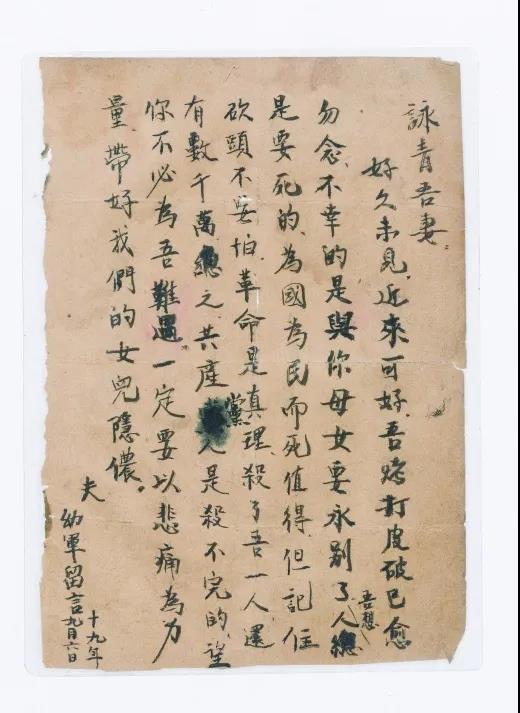 詠青吾妻：
好久未見，近來可好，吾烤打皮破已愈
勿念，不幸的是與你母女要永別了，吾想人總
是要死的，為國為民而死值得，但記住
砍頭不要怕，革命是真理，殺了吾一人還
有數千萬總之共產黨人是殺不完的，望
你不必為吾難過，一定要以悲痛為力
量，帶好我們的女兒隱儂。
夫
幼軍留言
十九年
九月六日